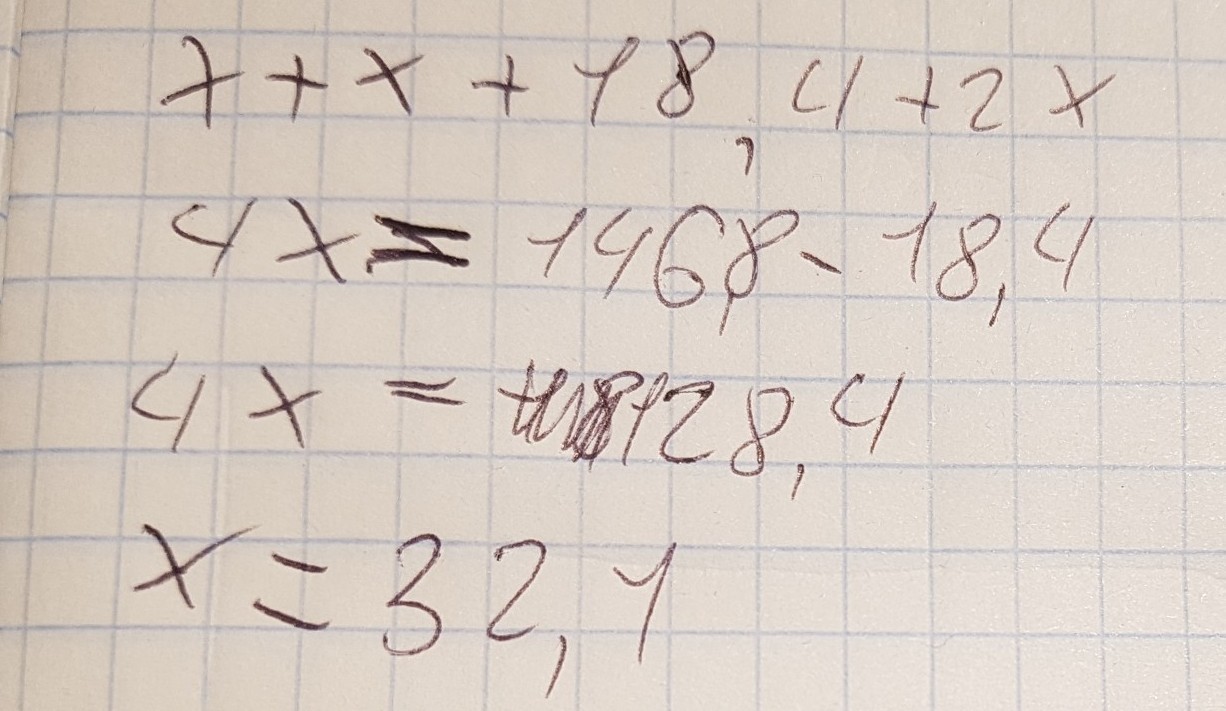 x + x + 18,4 + 2x
4x = 146,8 - 18,4
4x = 128,4
x = 32,1